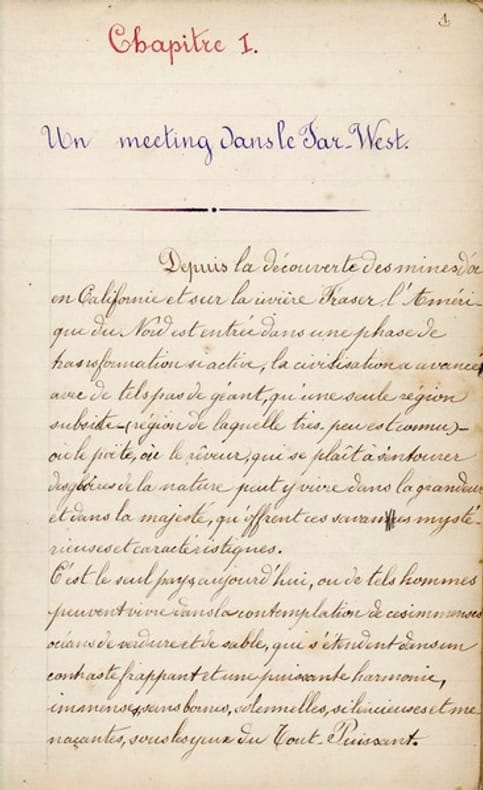 1
Chapitre I.
Un meeting dans le Far-West.
Depuis la découverte des mines d'or
en Californie et sur la rivière Fraser l'Améri-
que du Nord est entrée dans une phase de
transformation si active, la civilisation a avancé
avec de tels pas de géant, qu'une seule région
subsiste-(région de laquelle très-peu est connu)-
où le poëte, où le rêveur, qui se plaît à s'entourer
des gloires de la nature peut y vivre dans la grandeur
et dans la majesté, qu'offrent ces savannes mysté-
rieuses et caractéristiques.
C'est le seul pays aujourd'hui, ou de tels hommes
peuvent vivre dans la contemplation de ces immenses
océans de verdure et de sable, qui s'étendent dans un
contraste frappant et une puissante harmonie,
immenses, sans bornes, solennelles, silencieuses et me
naçantes, sous les yeux du Tout-Puissant.